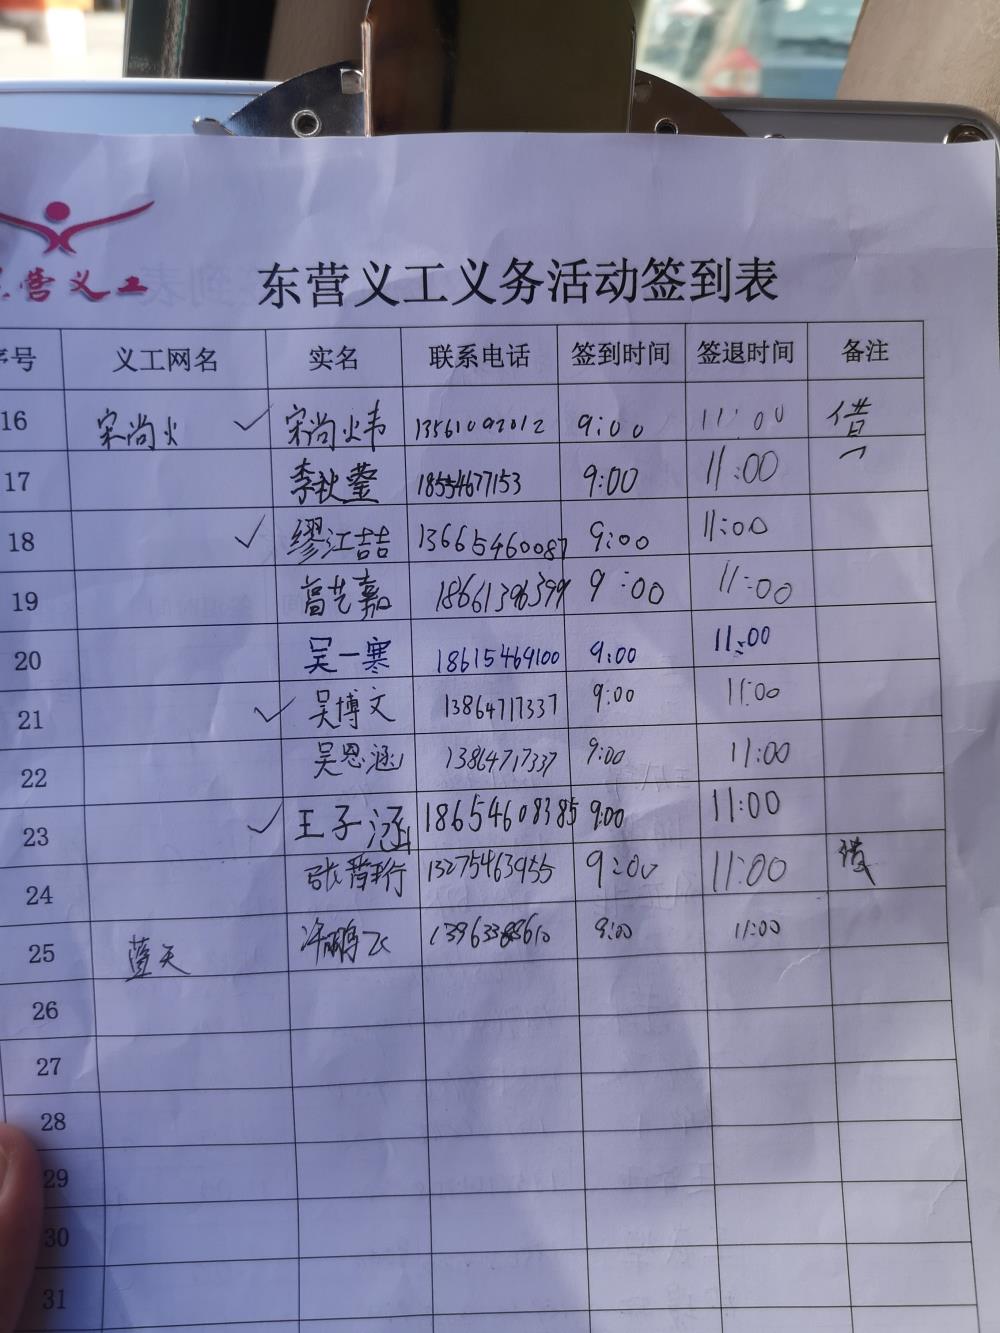 营义工
东营义工义务活动签到表
序号 义工网名 实名 联系电话 签到时间 签退时间 备注
16 宋尚火 ✓ 宋尚火韦 13561092012 9:00 11:00 借
17 李秋莹 18554677153 9:00 11:00
18 ✓ 缪江喆 13665460087 9:00 11:00
19 艺嘉 18661396399 9:00 11:00
20 吴一寒 18615469100 9:00 11:00
21 ✓ 吴博文 13864717337 9:00 11:00
22 吴恩涵 13864717337 9:00 11:00
23 ✓ 王子涵 18654608385 9:00 11:00
24 张 珩 13275463955 9:00 11:00 借
25 蓝天 许鹏飞 9:00 11:00
26
27
28
29
30
31